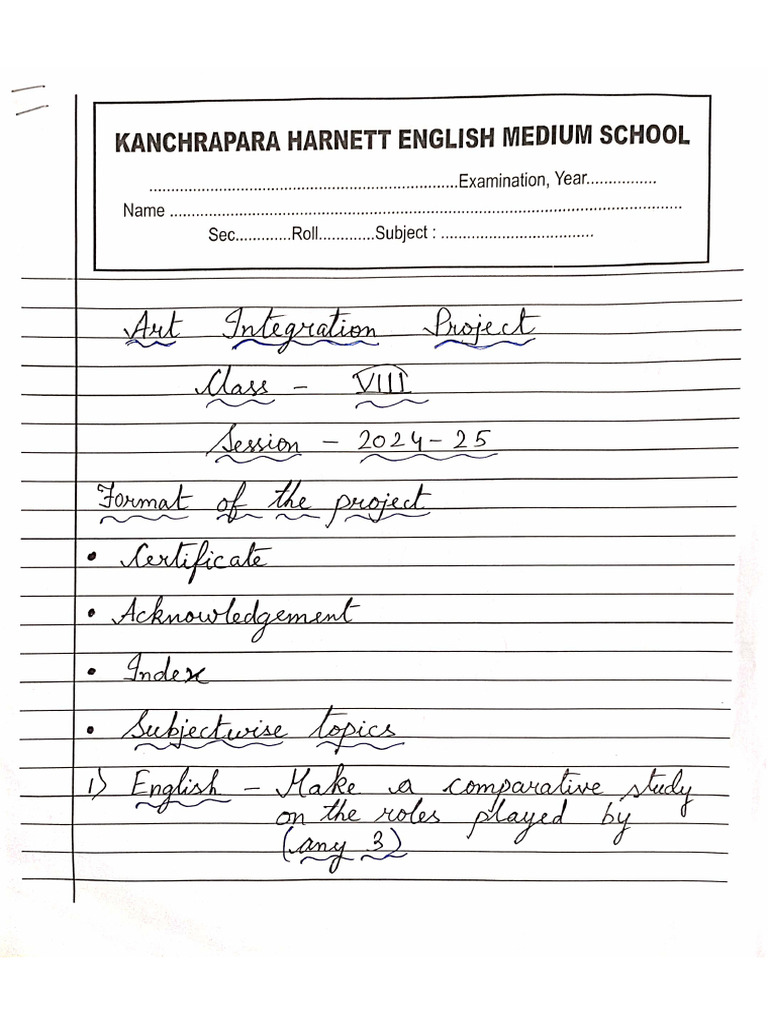 KANCHRAPARA HARNETT ENGLISH MEDIUM SCHOOL
..............................................................Examination, Year...............
Name .......................................................................................................
Sec............Roll............Subject : ..................................
Art Integration Project
Class - VIII
Session - 2024-25
Format of the project
• Certificate
• Acknowledgement
• Index
• Subjectwise topics
1) English - Make a comparative study
on the roles played by
(any 3)